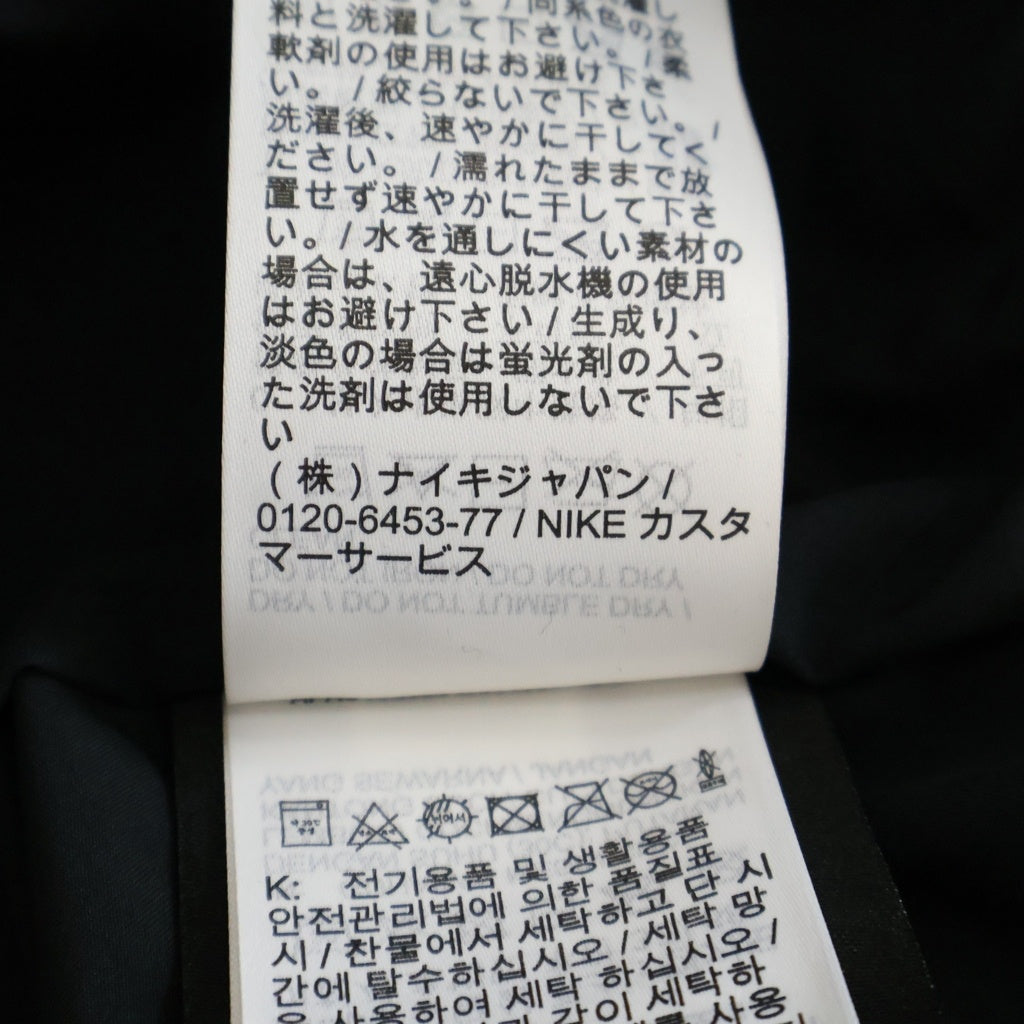 料と洗濯して下さい。
軟剤の使用はお避け下さ
い。 / 絞らないで下さい。 /
洗濯後、速やかに干してく
ださい。 / 濡れたままで放
置せず速やかに干して下さ
い。 / 水を通しにくい素材の
場合は、遠心脱水機の使用
はお避け下さい / 生成り、
淡色の場合は蛍光剤の入っ
た洗剤は使用しないで下さ
い
(株)ナイキジャパン /
0120-6453-77 / NIKE カスタ
マーサービス
K: 전기용품 및 생활용품
안전관리법에 의한 품질표
시 / 찬물에서 세탁하고 단 시
간에 탈수하십시오 / 세탁 망
사용하여 세탁 하십시오 /
같이 세탁하
사용